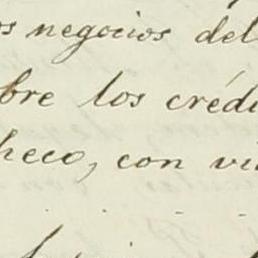 os negocios del
bre los crédi
checo, con vi